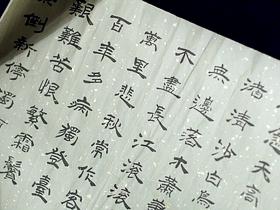 急天高
渚清沙白鳥
無邊落木蕭蕭
不盡長江滾滾
萬里悲秋常作客
百年多病獨登臺
艱難苦恨繁霜鬢
倒新停濁